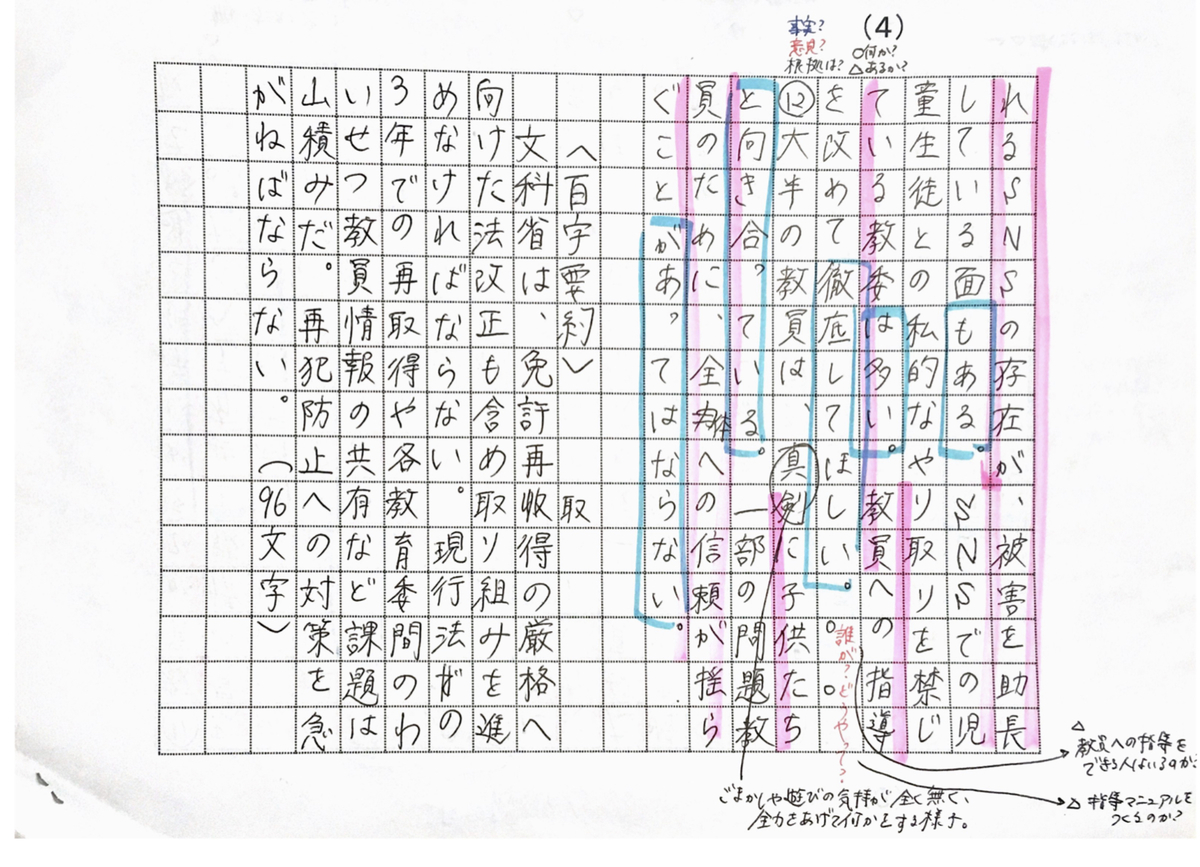 (4)
事実?
意見?
根拠は?
○何か?
△あるか?
れるSNSの存在が、被害を助長
している面もある。SNSでの児
童生徒との私的なやり取りを禁じ
ている教委は多い。教員への指導
を改めて徹底してほしい。
⑫大半の教員は、真剣に子供たち
と向き合っている。一部の問題教
員のために、全体への信頼が揺ら
ぐことがあってはならない。
〈百字要約〉
取
文科省は、免許再収得の厳格へ
向けた法改正も含め取り組みを進
めなければならない。現行法がの
3年での再取得や各教育委間のわ
いせつ教員情報の共有など課題は
山積みだ。再犯防止への対策を急
がねばならない。(96文字)
誰が?どうやって?
△教員への指導を
できる人はいるのか?
△指導マニュアルを
つくるのか?
ごまかしや遊びの気持が全く無く、
全力をあげて何かをする様子。